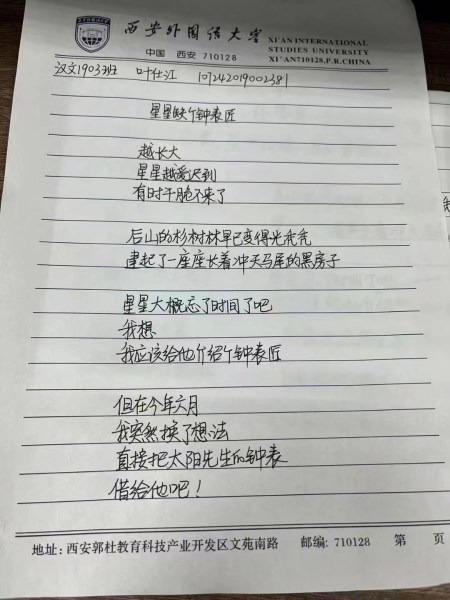 西安外国语大学
XI'AN INTERNATIONAL
STUDIES UNIVERSITY
中国 西安 710128
XI'AN710128,P.R.CHINA
汉文1903班 叶仕江 107242019002381
星星缺个钟表匠
越长大
星星越爱迟到
有时干脆不来了
后山的杉树林早已变得光秃秃
建起了一座座长着冲天马尾的黑房子
星星大概忘了时间了吧
我想
我应该给他介绍个钟表匠
但在今年六月
我突然换了想法
直接把太阳先生的钟表
借给他吧！
地址: 西安郭杜教育科技产业开发区文苑南路 邮编: 710128 第 页